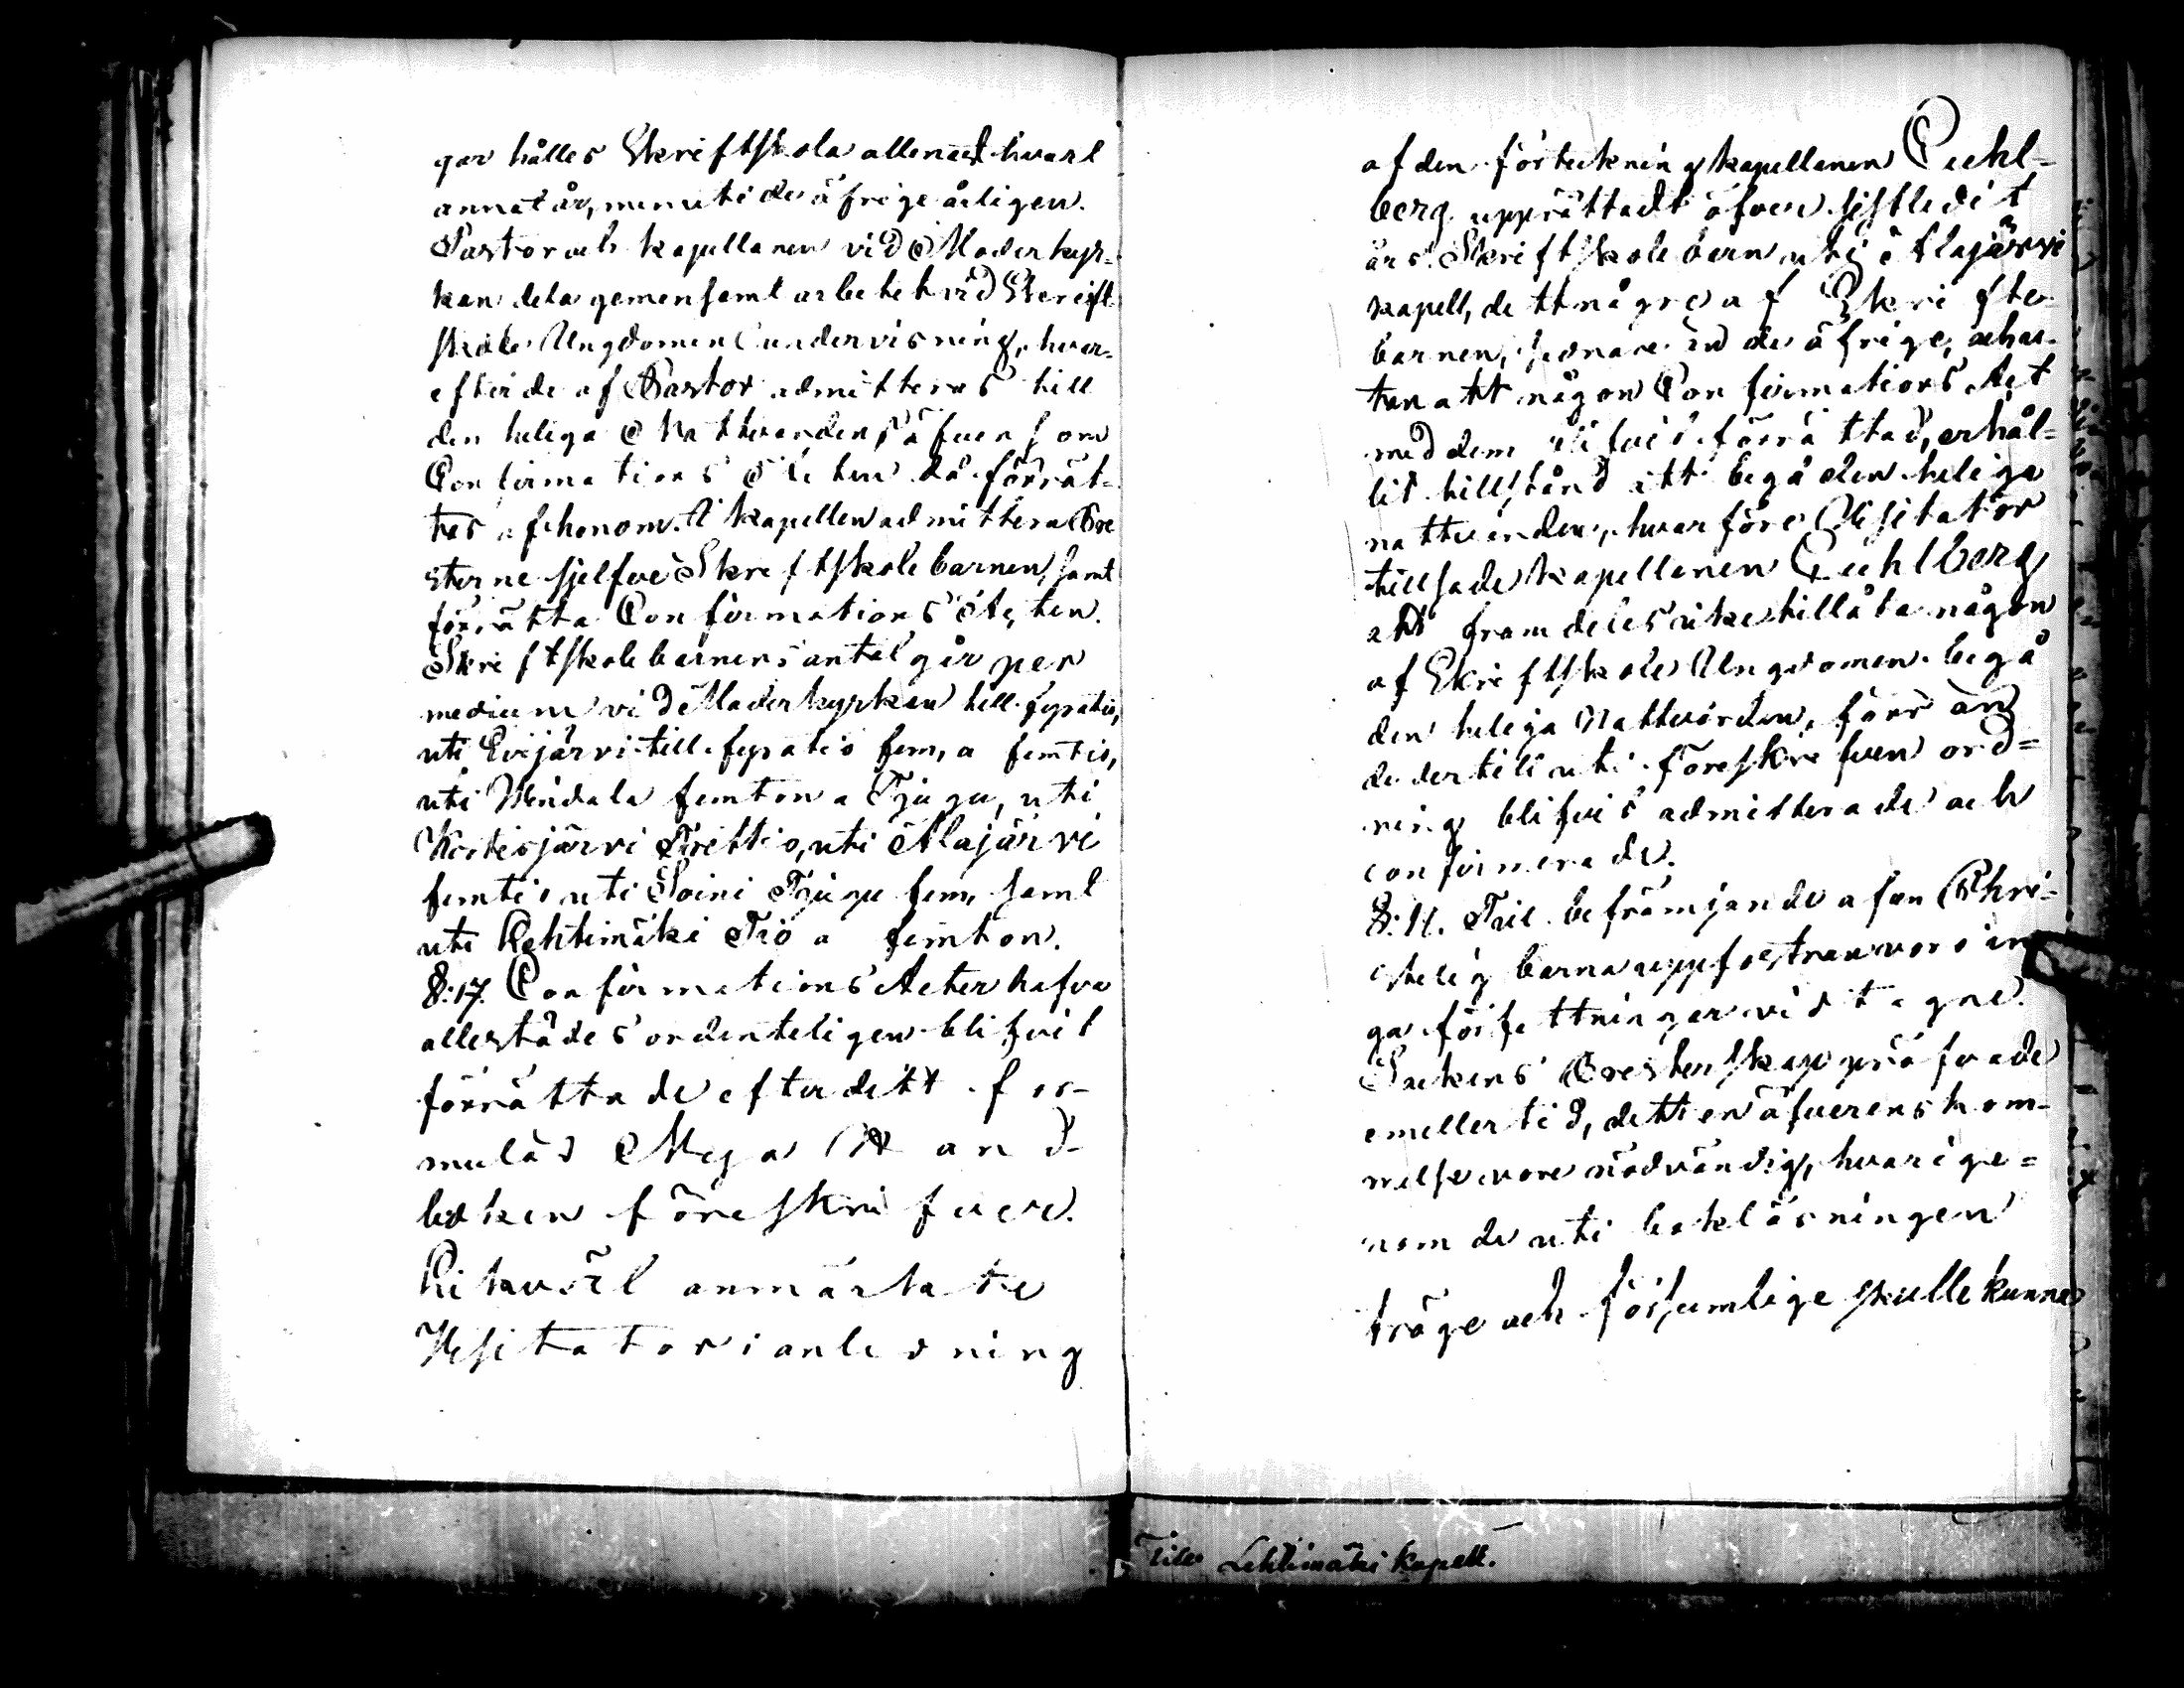 gar hålles Skriftskola allenast hvart
annat år, men uti de öfrige årligen.
Pastor och kapellanen vid Moderkyr-
kan dela gemensamt arbetet vid Skrift
skole Ungdomens undervisning, hvar-
efter de af Pastor admitteras till
den heliga Nattvarden, äfven som
Confirmations Acten då förrät-
tas af honom. I kapellen admittera Pre
sterne sjelfve Skriftskolebarnen, samt
förrätta Confirmations Acten.
Skriftskolebarnens antal går per
medium vid Moderkyrkan till fyratio,
uti Evijärvi till fyratio fem, a femtio,
uti Vindala femton a Tjugu, uti
Kortesjärvi Trettio, uti Alajärvi
femtio uti Soini Tjugu fem, samt
uti Lehtimäki Tio a femton.
§:17. Confirmations Acter hafva
allestädes ordenteligen blifvit
förrättade efter dett for-
mulär Nya Hand-
boken föreskrifver.
Likväl anmärkte
Visitator i anledning
af den förteckning kapellanen Cuhl-
berg upprättadt öfver sistledit
års Skriftskolebarn uti Alajärvi
kapell, dett någre af Skrifte
barnen, sednare än de öfrige, och u-
tan att någon Confirmations Act
med dem blifvit förrättad, erhål-
lit tillstånd att begå den heliga
nattvarden, hvarföre Visitator
tillsade kapellanen Cuhlberg
att framdeles icke tillåta någon
af Skriftskole Ungdomen begå
den heliga Nattvarden, förr än
de dertill uti föreskrifven ord=
ning blifvit admitterade och
confirmerade.
§:18. Till befrämjande af en Chri-
stelig barnauppfostran voro in
ga författningar vidtagne.
Sockens Presterskap pröfvade
emellertid, dett en öfverenskom-
melse vore nödvändig, hvarige=
nom de uti bokläsningen
tröge och försumlige skulle kunna
Till Lehtimäki Kapell.